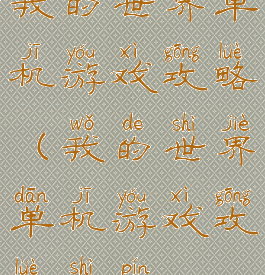 我的世界单
jī yóu xì gōng lüè
机游戏攻略
wǒ de shì jiè
（我的世界
dān jī yóu xì gōng
单机游戏攻
lüè shì pín